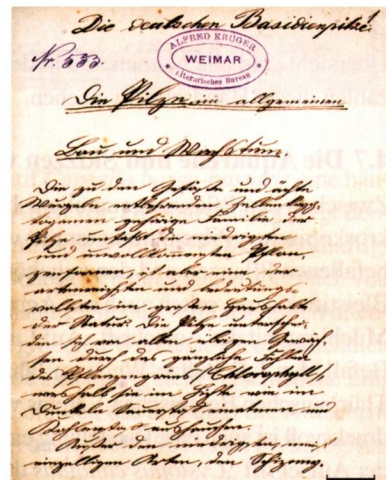 Die deutschen Basidienpilze.
Nr. 533.
ALFRED KRÜGER
WEIMAR
Literarisches Bureau
Die Pilze im allgemeinen
Bau und Wachstum.
Die zu den Gefäße und ächte
Wurzeln entbehrenden Zellen
gehörige Familie der
Pilze umfaßt die niedrigsten
und unvollkommensten Pflan-
zenformen, ist aber eine der
artenreichsten und bedeutungs-
vollsten im großen Haushalte
der Natur. Die Pilze unterschei-
den sich von allen übrigen Gewäch-
sen durch das gänzliche Fehlen
des Pflanzengrüns (Chlorophyll),
weshalb sie im Lichte wie im
Dunkeln Sauerstoff einatmen und
Kohlensäure aushauchen.
Unter den niedrigsten meist
einzelligen Arten, den